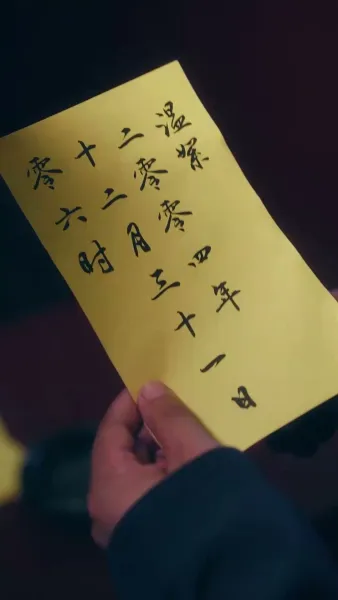 温絮
二零零四年
十二月三十一日
零六时